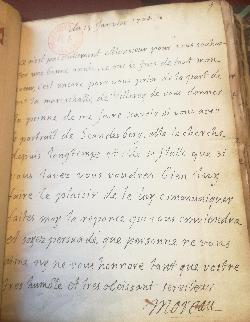 du 15 Janvier 1708.
Ce n'est pas seulement Monsieur pour vous souhai-
ter une bonne année, ce que je fais de tout mon
cœur, c'est encore pour vous prier de la part de
la mareschalle de Villeroy de vous donner
la penne de me faire sçavoir si vous avez
le portrait de Scanderbeg, elle le cherche
depuis longtemps et elle se flatte que si
vous l'avez vous voudrez bien luy
faire le plaisir de le luy communiquer
faites moy la réponce qui vous conviendra
et soyez persuadé que personne ne vous
aime ne ne vous honnore tant que vostre
tres humble et tres obeissant serviteur
Moreau